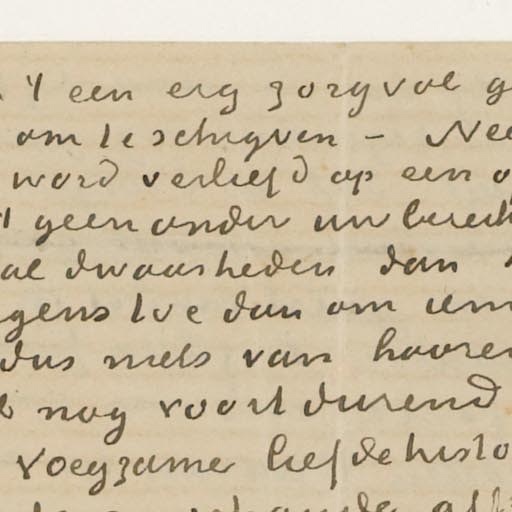 't een erg zorgvol g
om te schryven - Nee
word verliefd op een o
't geen onder uw bereik
al dwaasheden dan
gens toe dan om iem
dus niets van hooren
nog voortdurend
voegzame liefdehisto